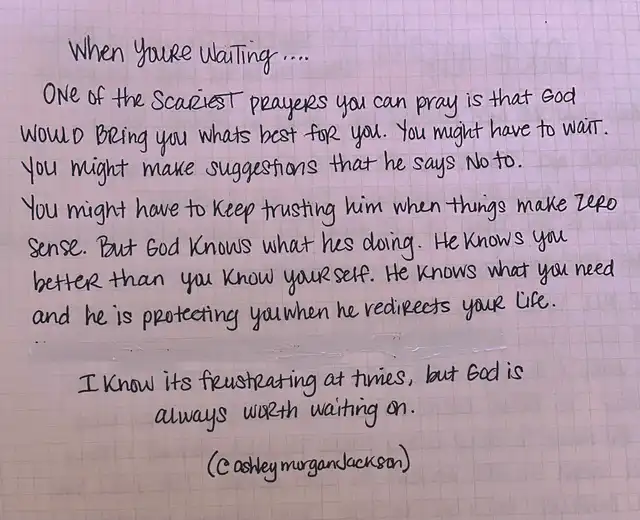 When Youre Waiting....
One of the Scariest prayers you can pray is that God
would Bring you whats best for you. You might have to wait.
You might make suggestions that he says No to.
You might have to Keep trusting him when things make zero
sense. But God Knows what hes doing. He Knows you
better than you Know yourself. He Knows what you need
and he is protecting you when he redirects your Life.
I Know its frustrating at times, but God is
always worth waiting on.
(@ashleymorganJackson)